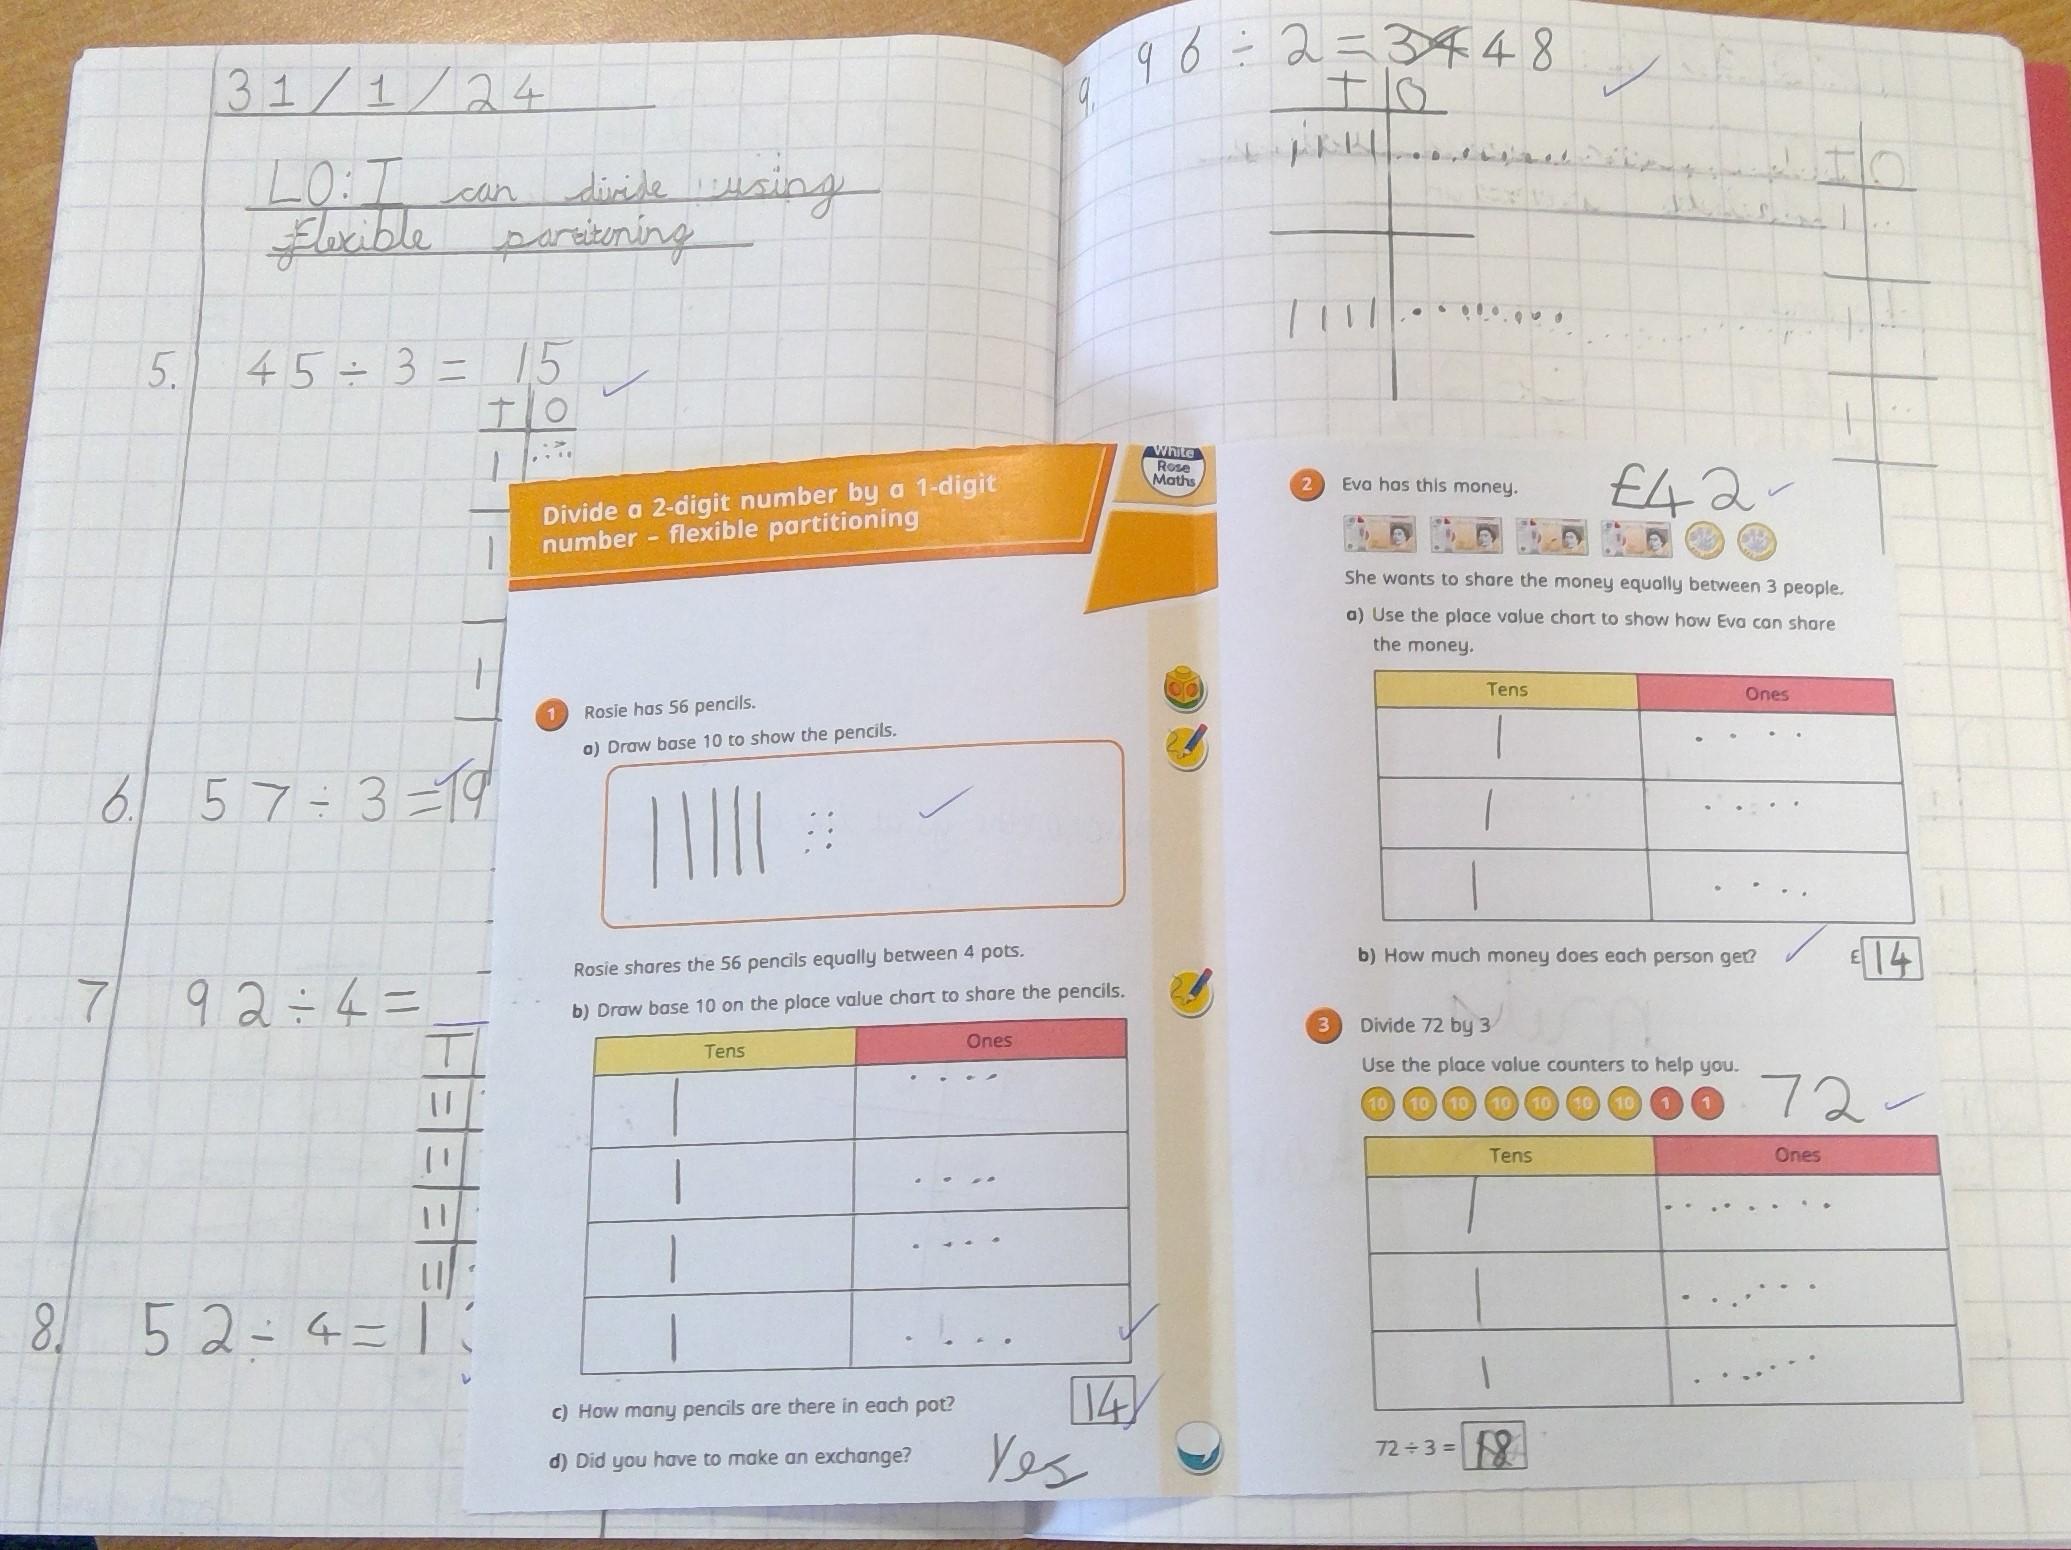 31/1/24
LO: I can divide using
flexible partitoning
5. 45 ÷ 3 = 15
T O
6. 57 ÷ 3 = 19
7 92 ÷ 4 =
T
8. 52 ÷ 4 = 1
9. 96 ÷ 2 = 34 48
T O
T O
Divide a 2-digit number by a 1-digit
number – flexible partitioning
White
Rose
Maths
1 Rosie has 56 pencils.
a) Draw base 10 to show the pencils.
Rosie shares the 56 pencils equally between 4 pots.
b) Draw base 10 on the place value chart to share the pencils.
Tens Ones
c) How many pencils are there in each pot? 14
d) Did you have to make an exchange? Yes
2 Eva has this money. £42
She wants to share the money equally between 3 people.
a) Use the place value chart to show how Eva can share
the money.
Tens Ones
b) How much money does each person get? £ 14
3 Divide 72 by 3
Use the place value counters to help you.
10 10 10 10 10 10 10 1 1 72
Tens Ones
72 ÷ 3 = 18